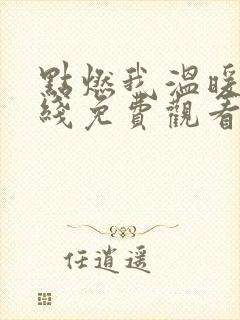 點燃我溫暖
綫免費觀看
任逍遥